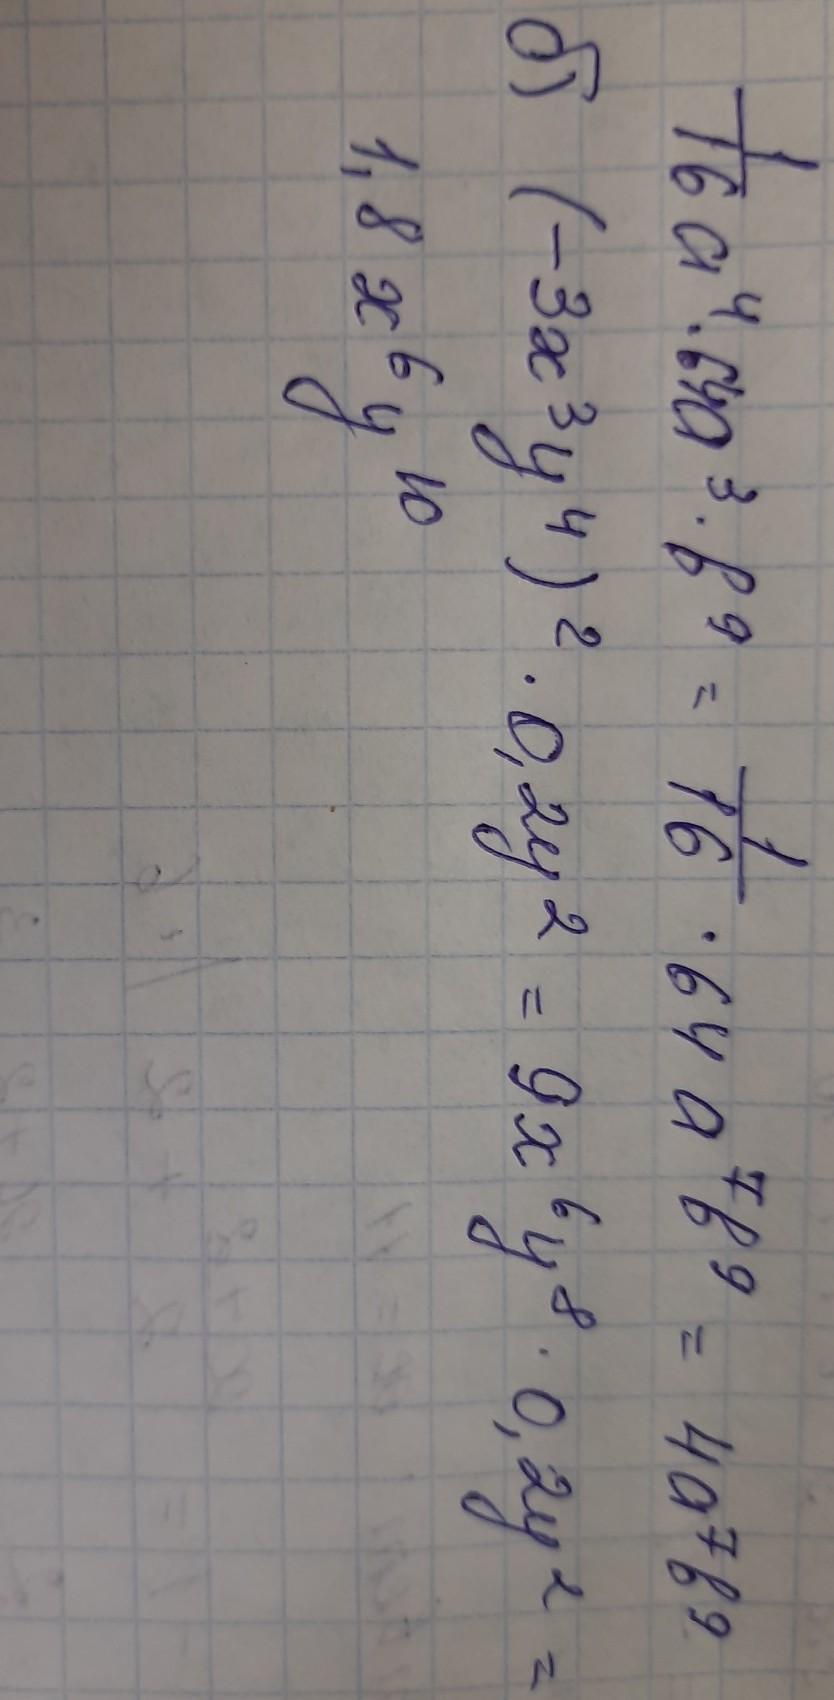 1/16 a⁴ · 64a³ · b⁹ = 1/16 · 64 a⁷b⁹ = 4a⁷b⁹
б) (-3x³y⁴)² · 0,2y² = 9x⁶y⁸ · 0,2y² =
1,8x⁶y¹⁰